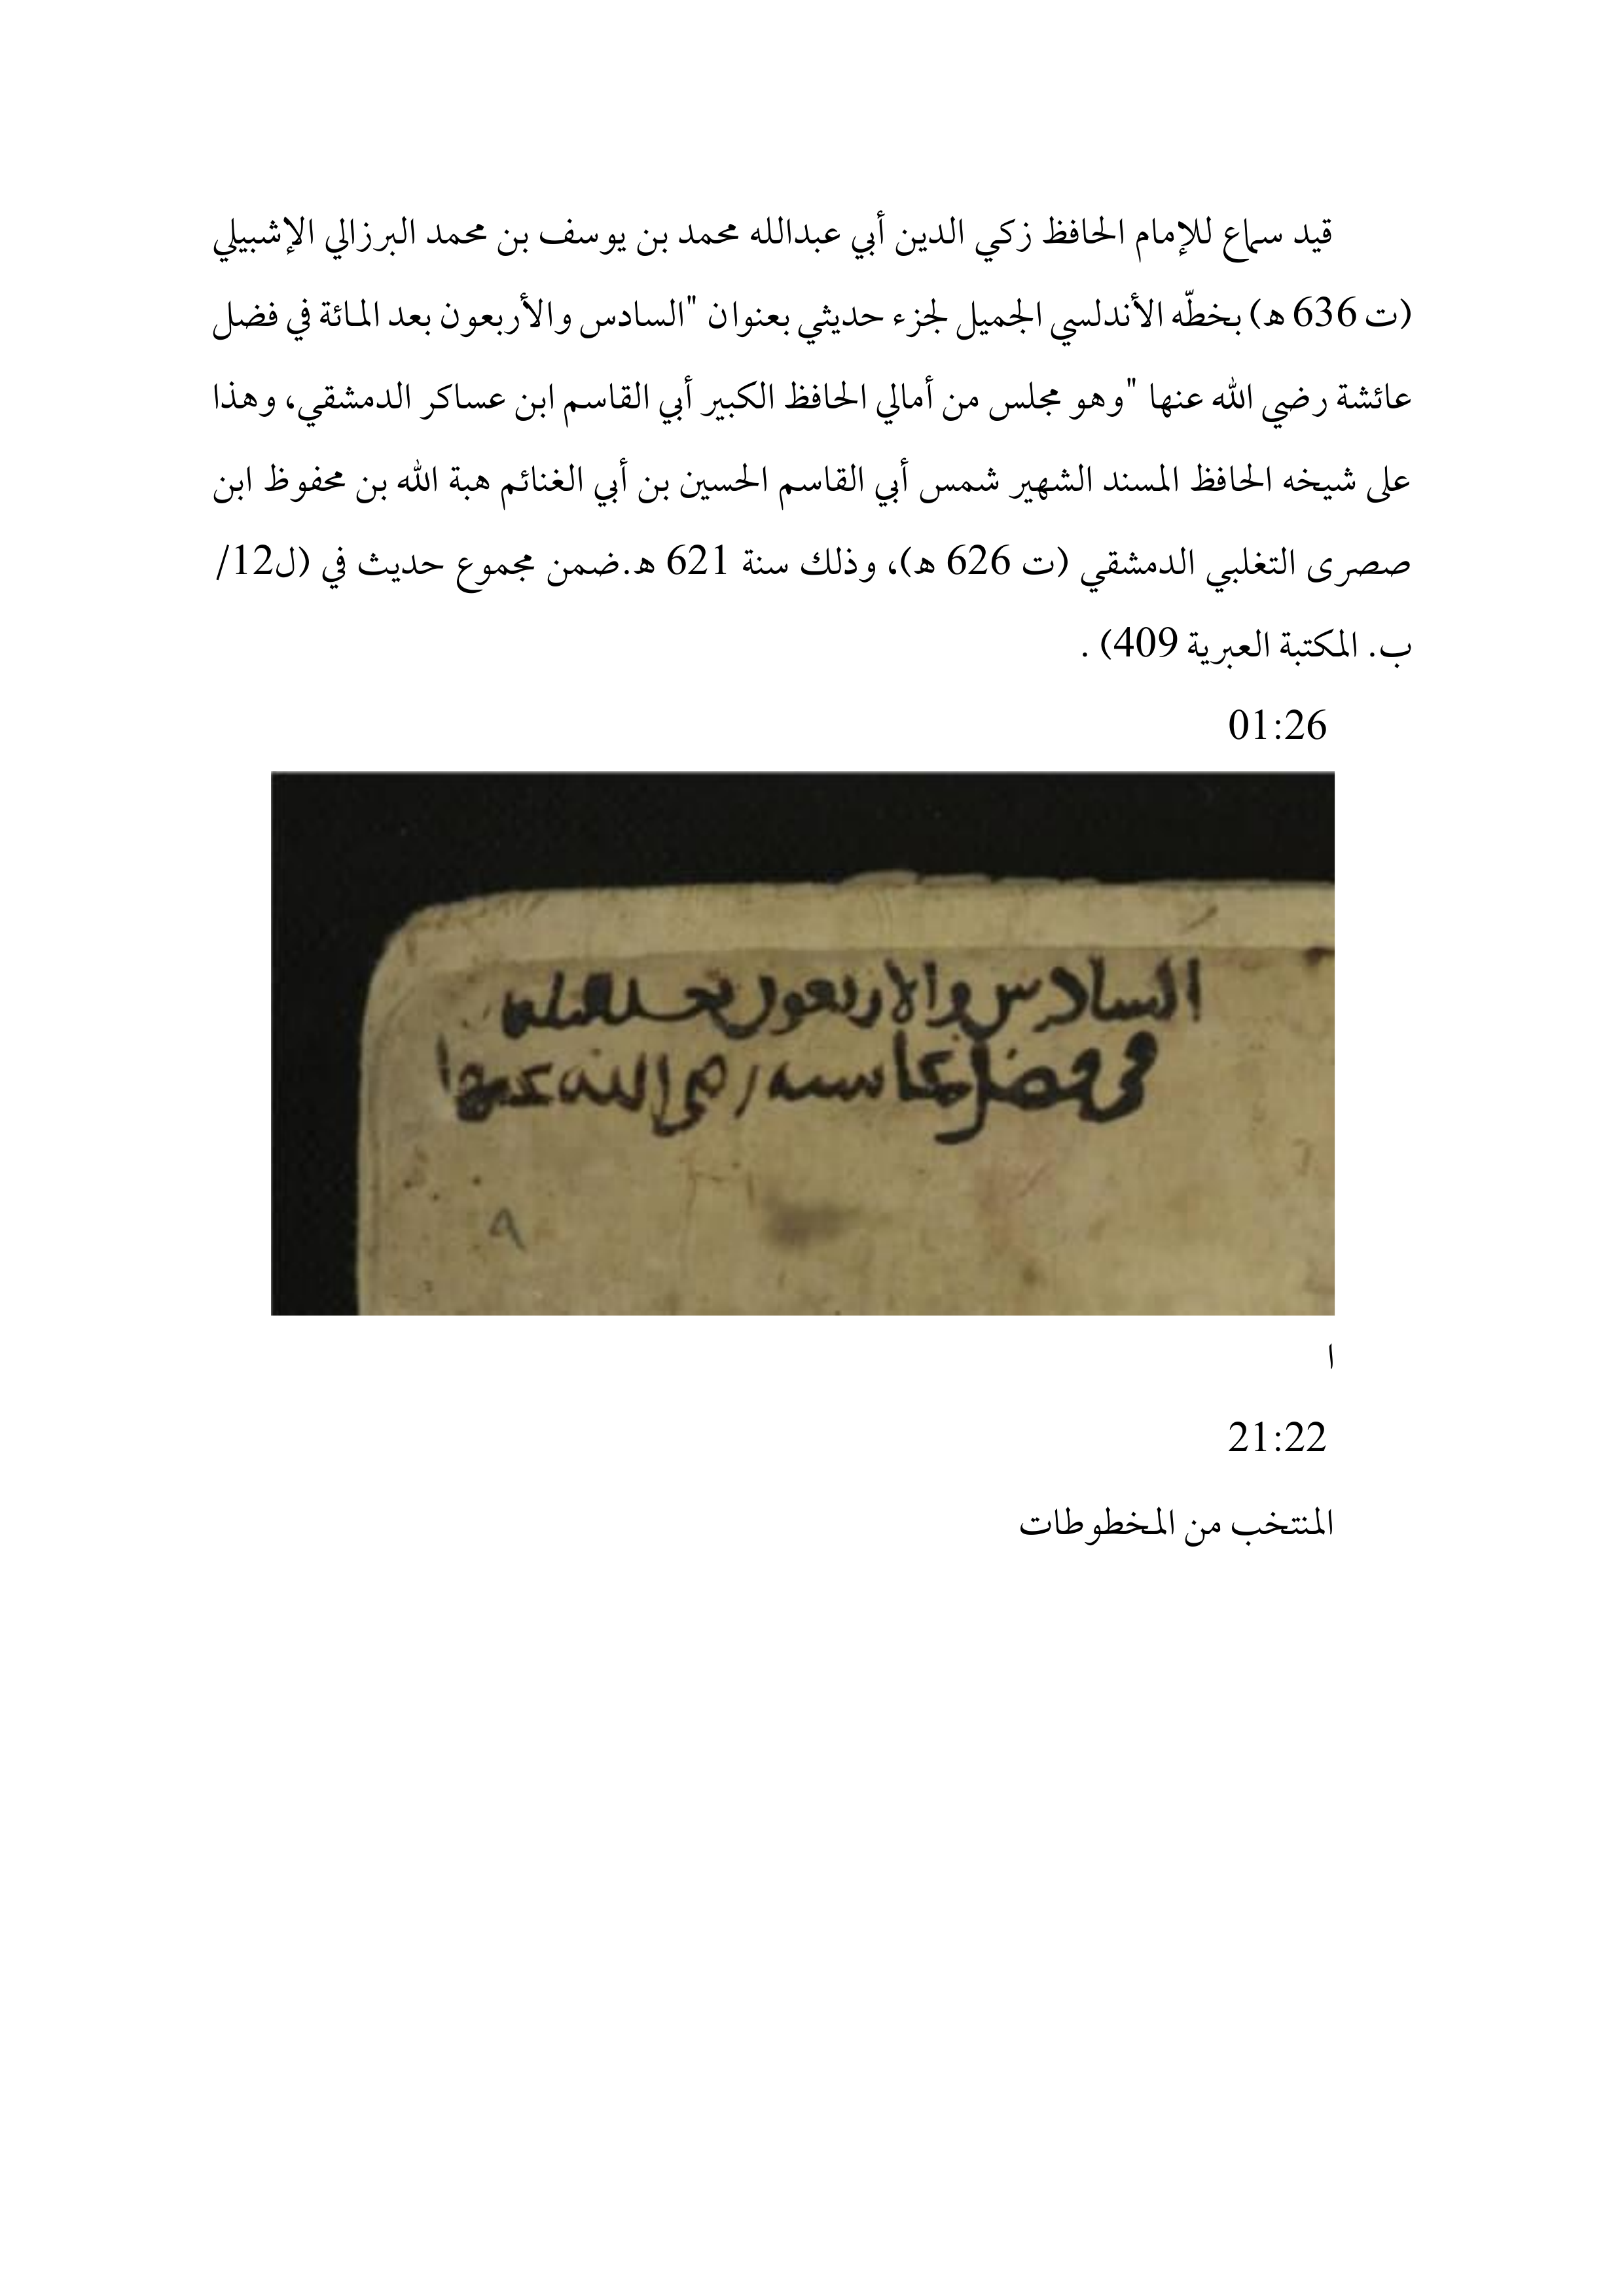 قيد سماع للإمام الحافظ زكي الدين أبي عبدالله محمد بن يوسف بن محمد البرزالي الإشبيلي
(ت 636 ه) بخطّه الأندلسي الجميل لجزء حديثي بعنوان "السادس والأربعون بعد المائة في فضل
عائشة رضي الله عنها "وهو مجلس من أمالي الحافظ الكبير أبي القاسم ابن عساكر الدمشقي، وهذا
على شيخه الحافظ المسند الشهير شمس أبي القاسم الحسين بن أبي الغنائم هبة الله بن محفوظ ابن
صصرى التغلبي الدمشقي (ت 626 ه)، وذلك سنة 621 ه.ضمن مجموع حديث في (ل12/
ب. المكتبة العبرية 409) .
01:26
السادس والاربعون بعد المايه
في فضل عائشه رضي الله عنها
٩
ا
21:22
المنتخب من المخطوطات